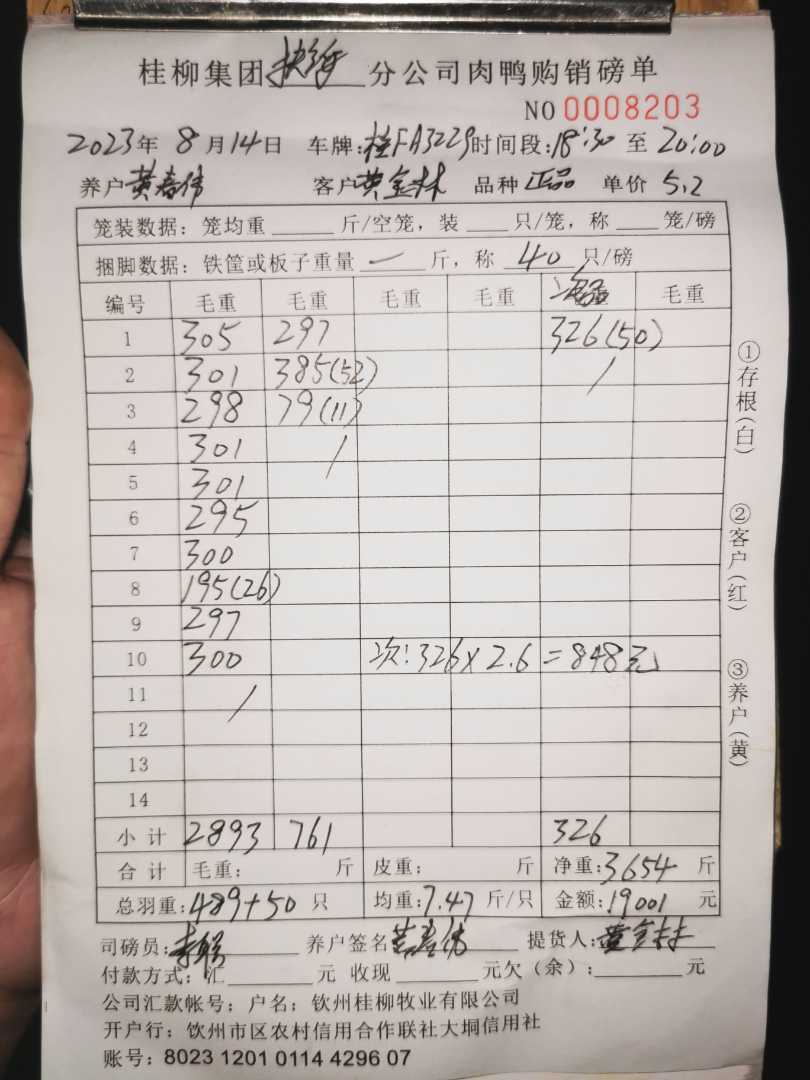 桂柳集团 分公司肉鸭购销磅单
NO 0008203
2023年 8月14日 车牌:桂FA3229 时间段:18:30 至 20:00
养户 黄春伟 客户 黄金林 品种 正品 单价 5.2
笼装数据: 笼均重 斤/空笼, 装 只/笼, 称 笼/磅
捆脚数据: 铁筐或板子重量 一 斤, 称 40 只/磅
编号 毛重 毛重 毛重 毛重 毛重
1 305 297 326(50)
2 301 385(52) /
3 298 79(11)
4 301 /
5 301
6 295
7 300
8 195(26)
9 297
10 300 次:326×2.6=848元
11 /
12
13
14
小计 2893 761 326
合计 毛重: 斤 皮重: 斤 净重:3654 斤
总羽重:489+50 只 均重:7.47 斤/只 金额:19001 元
司磅员: 养户签名 黄春伟 提货人: 黄金林
付款方式:汇 元 收现 元欠(余): 元
公司汇款帐号: 户名: 钦州桂柳牧业有限公司
开户行: 钦州市区农村信用合作联社大垌信用社
账号: 8023 1201 0114 4296 07
①存根(白)
②客户(红)
③养户(黄)